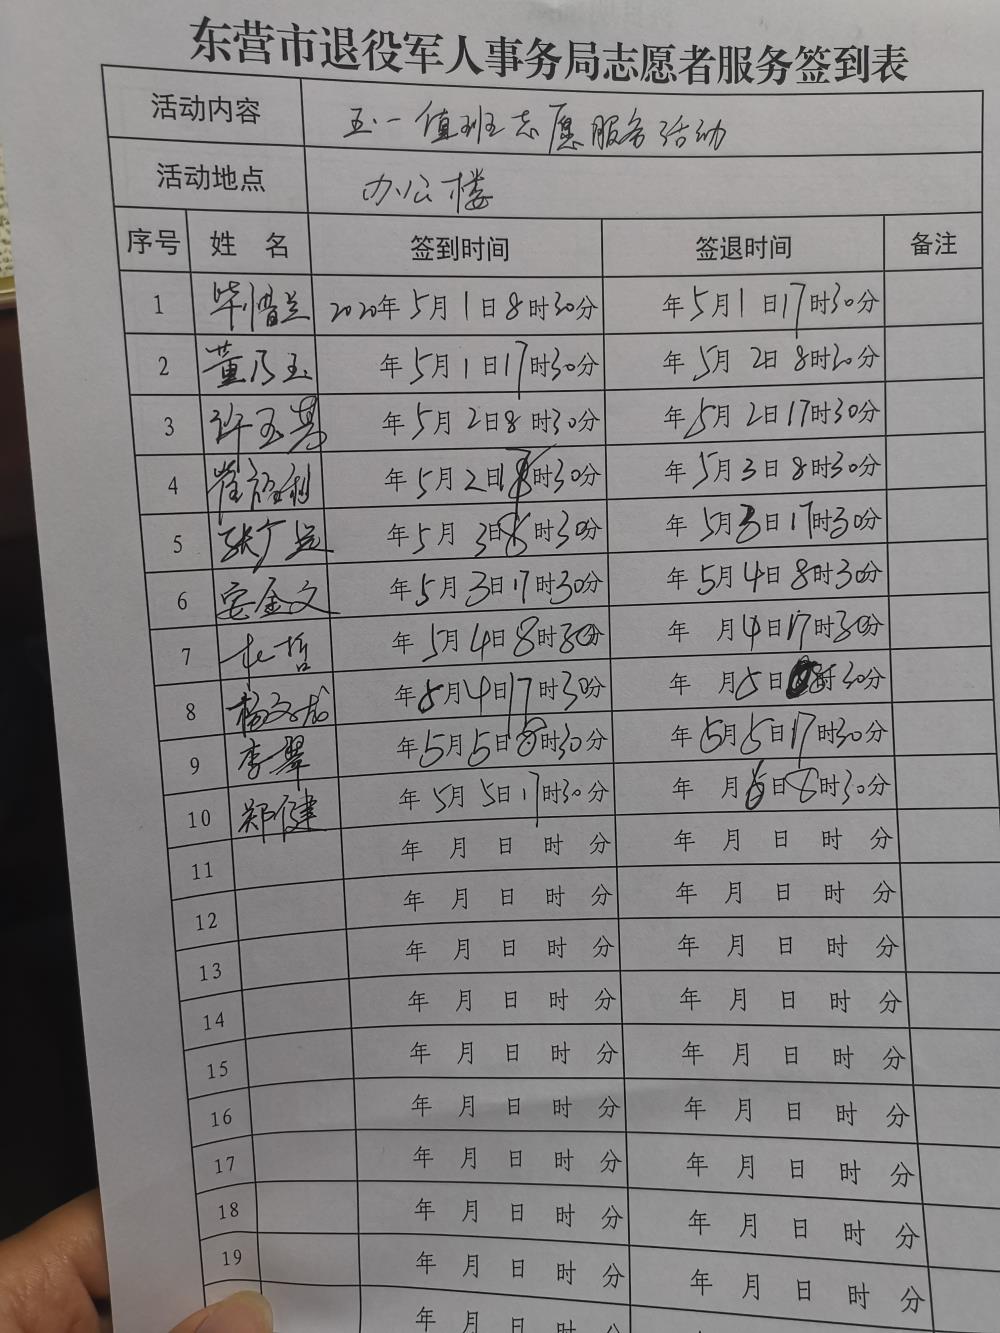 东营市退役军人事务局志愿者服务签到表
活动内容 五一值班志愿服务活动
活动地点 办公楼
序号 姓 名 签到时间 签退时间 备注
1 毕惜兰 2020年5月1日8时30分 年5月1日17时30分
2 董乃玉 年5月1日17时30分 年5月2日8时30分
3 许玉 年5月2日8时30分 年5月2日17时30分
4 崔 利 年5月2日 时30分 年5月3日8时30分
5 张广 年5月3日8时30分 年5月3日17时30分
6 安金文 年5月3日17时30分 年5月4日8时30分
7 哲 年5月4日8时30分 年 月4日17时30分
8 杨文 年5月4日17时30分 年 月5日8时30分
9 李翠 年5月5日8时30分 年5月5日17时30分
10 郑健 年5月5日17时30分 年 月6日8时30分
11 年 月 日 时 分 年 月 日 时 分
12 年 月 日 时 分 年 月 日 时 分
13 年 月 日 时 分 年 月 日 时 分
14 年 月 日 时 分 年 月 日 时 分
15 年 月 日 时 分 年 月 日 时 分
16 年 月 日 时 分 年 月 日 时 分
17 年 月 日 时 分 年 月 日 时 分
18 年 月 日 时 分 年 月 日 时 分
19 年 月 日 时 分 年 月 日 时 分
年 月 日 时